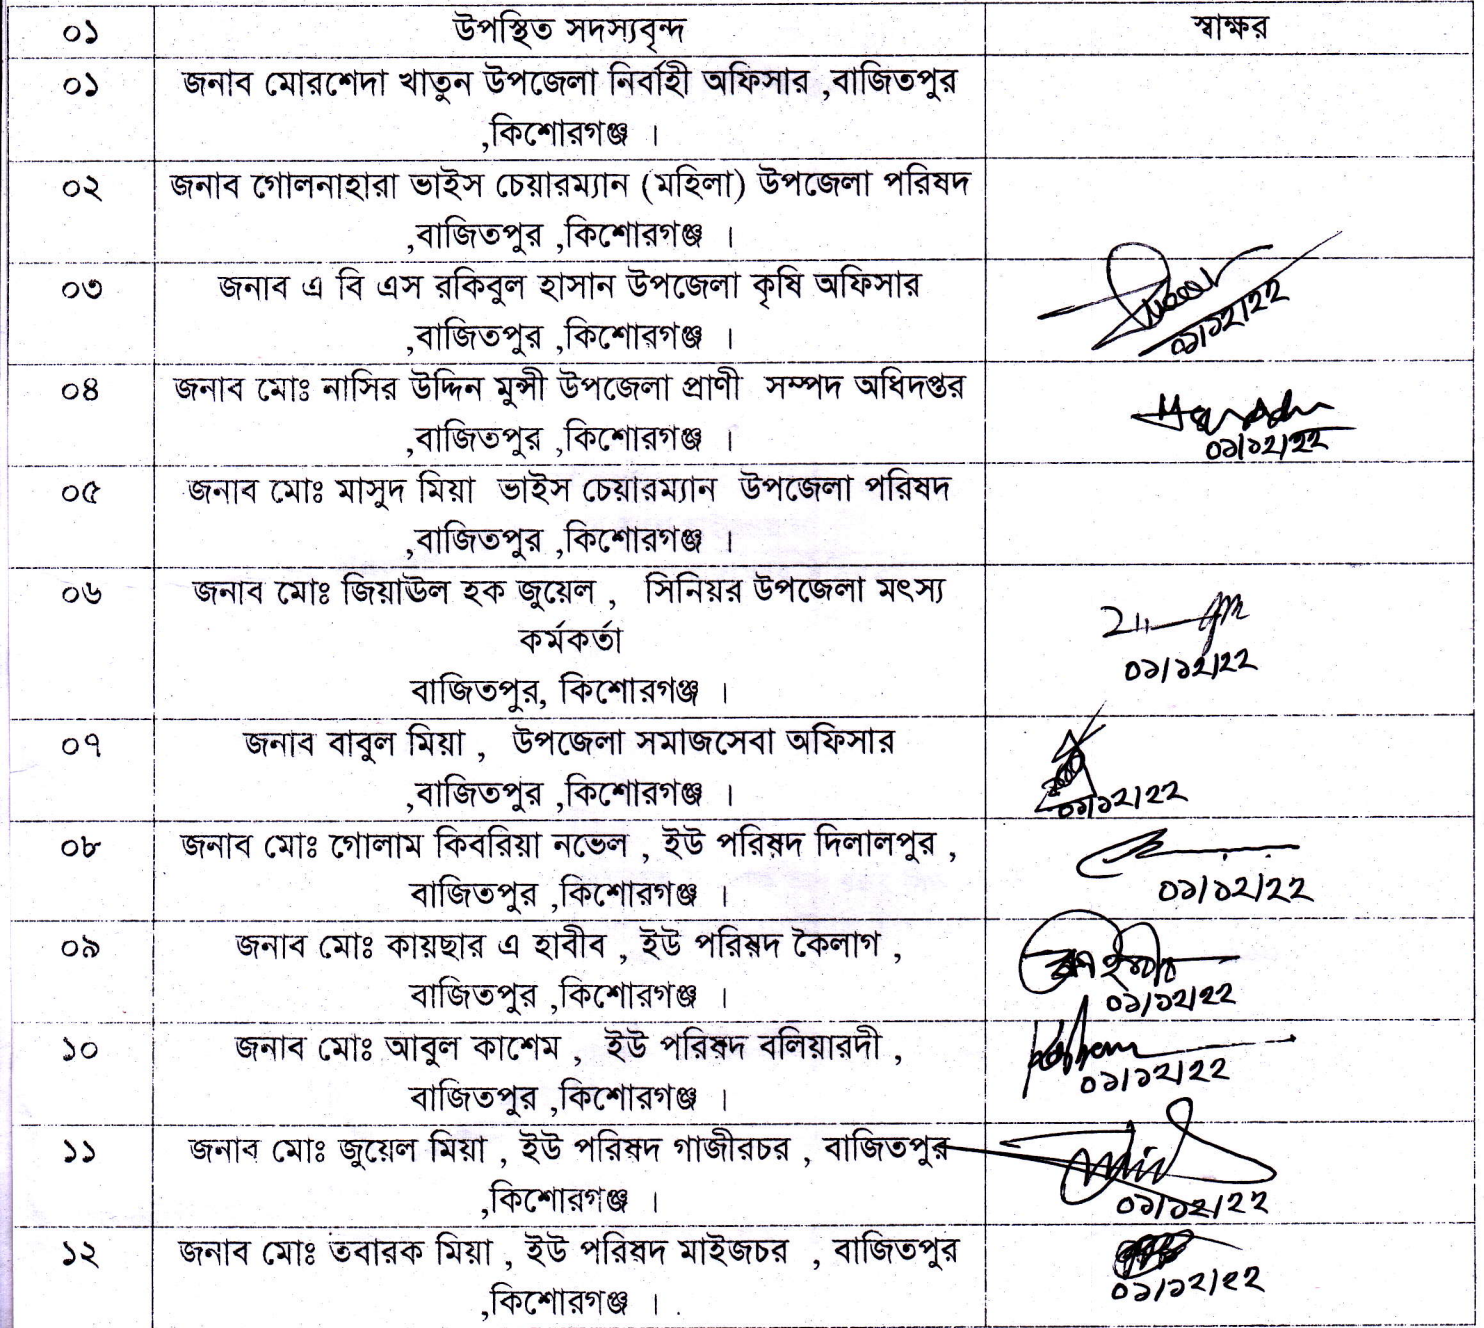 ০১ উপস্থিত সদস্যবৃন্দ স্বাক্ষর
০১ জনাব মোরশেদা খাতুন উপজেলা নির্বাহী অফিসার ,বাজিতপুর
,কিশোরগঞ্জ ।
০২ জনাব গোলনাহারা ভাইস চেয়ারম্যান (মহিলা) উপজেলা পরিষদ
,বাজিতপুর ,কিশোরগঞ্জ ।
০৩ জনাব এ বি এস রকিবুল হাসান উপজেলা কৃষি অফিসার
,বাজিতপুর ,কিশোরগঞ্জ ।
০১/১২/২২
০৪ জনাব মোঃ নাসির উদ্দিন মুন্সী উপজেলা প্রাণী সম্পদ অধিদপ্তর
,বাজিতপুর ,কিশোরগঞ্জ ।
০১/১২/২২
০৫ জনাব মোঃ মাসুদ মিয়া ভাইস চেয়ারম্যান উপজেলা পরিষদ
,বাজিতপুর ,কিশোরগঞ্জ ।
০৬ জনাব মোঃ জিয়াউল হক জুয়েল , সিনিয়র উপজেলা মৎস্য
কর্মকর্তা
বাজিতপুর, কিশোরগঞ্জ ।
০১/১২/২২
০৭ জনাব বাবুল মিয়া , উপজেলা সমাজসেবা অফিসার
,বাজিতপুর ,কিশোরগঞ্জ ।
০১/১২/২২
০৮ জনাব মোঃ গোলাম কিবরিয়া নভেল , ইউ পরিষদ দিলালপুর ,
বাজিতপুর ,কিশোরগঞ্জ ।
০১/১২/২২
০৯ জনাব মোঃ কায়ছার এ হাবীব , ইউ পরিষদ কৈলাগ ,
বাজিতপুর ,কিশোরগঞ্জ ।
০১/১২/২২
১০ জনাব মোঃ আবুল কাশেম , ইউ পরিষদ বলিয়ারদী ,
বাজিতপুর ,কিশোরগঞ্জ ।
০১/১২/২২
১১ জনাব মোঃ জুয়েল মিয়া , ইউ পরিষদ গাজীরচর , বাজিতপুর
,কিশোরগঞ্জ ।
০১/১২/২২
১২ জনাব মোঃ তবারক মিয়া , ইউ পরিষদ মাইজচর , বাজিতপুর
,কিশোরগঞ্জ ।
০১/১২/২২